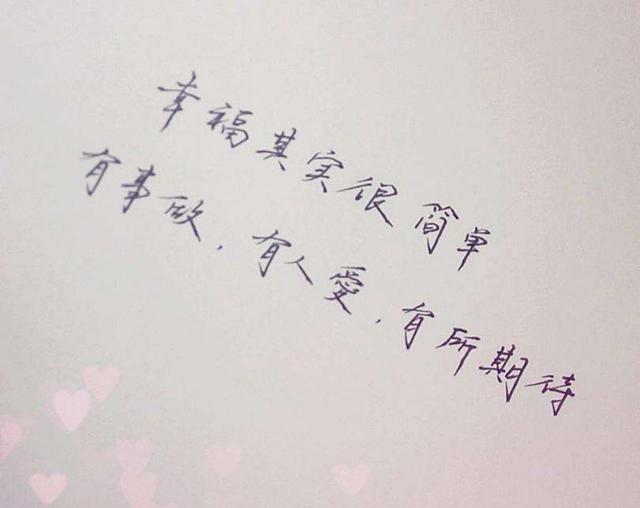 幸福其实很简单
有事做,有人愛,有所期待